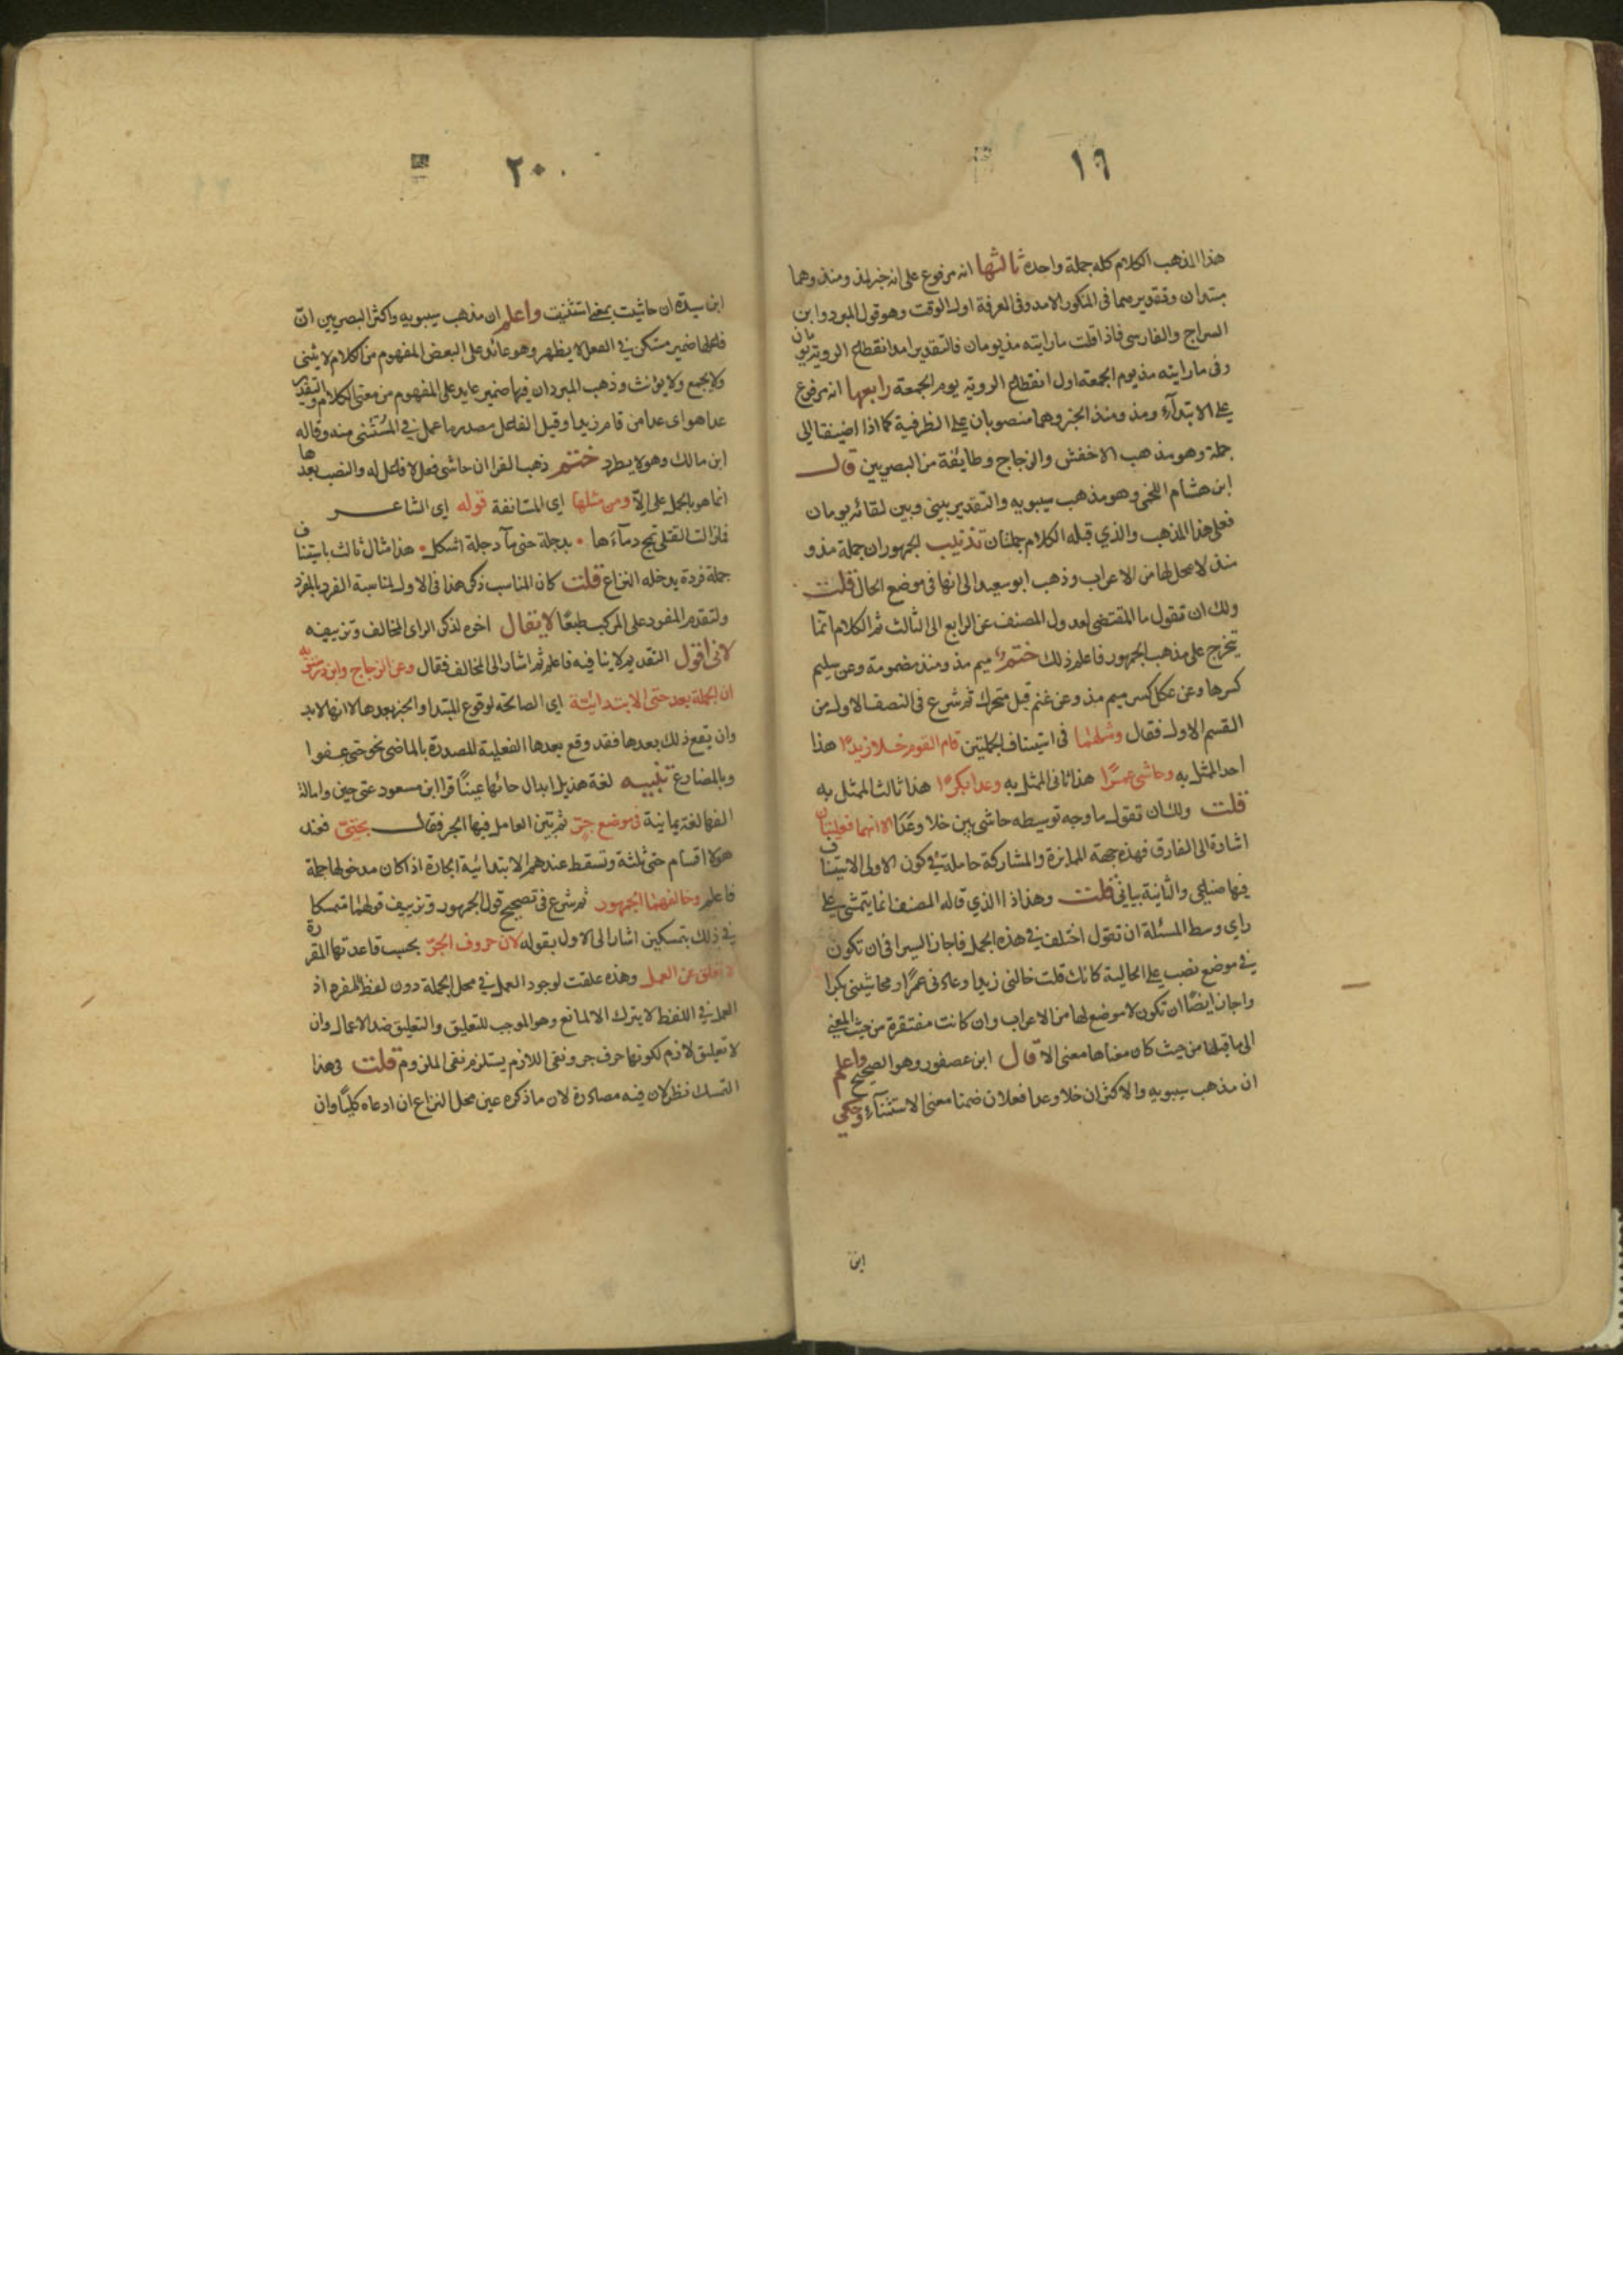 ١٩
هذا المذهب الكلام كله جملة واحدة ثالثها انه مرفوع على انه خبر لمذ ومنذ وهما
مبتدان وتقديرهما في المنكور الامد وفي المعرفة اول الوقت وهو قول المبرد وابن
السراج والفارسي فاذا قلت ما رايته مذ يومان فالتقدير امد انقطاع الروية يومان
وفي ما رايته مذ يوم الجمعة اول انقطاع الروية يوم الجمعة رابعها انه مرفوع
على الابتدآء ومذ ومنذ الخبر وهما منصوبان على الظرفية كما اذا اضيفتا الى
جملة وهو مذهب الاخفش والزجاج وطايفة من البصريين قال
ابن هشام اللخمي وهو مذهب سيبويه والتقدير بيني وبين لقائه يومان
فعلى هذا المذهب والذي قبله الكلام جملتان تذنيب الجمهور ان جملة مذ و
منذ لا محل لها من الاعراب وذهب ابو سعيد الى انها في موضع الحال قلت
ولك ان تقول ما المقتضى لعدول المصنف عن الرابع الى الثالث ثم الكلام انما
يتخرج على مذهب الجمهور فاعلم ذلك ختم ميم مذ ومنذ مضمومة وعن سليم
كسرها وعن عكل كسر ميم مذ وعن غنم قبل متحرك ثم شرع في النصف الاول من
القسم الاول فقال ومثلهما في استيناف الجملتين قام القوم خلا زيدًا هذا
احد الممثل به وحاشى عمرًا هذا ثاني الممثل به وعدا بكرًا هذا ثالث الممثل به
قلت ولك ان تقول ما وجه توسيطه حاشى بين خلا وعدا الا انهما فعليتان
اشارة الى الفارق فهذه جهة المايزة والمشاركة حاملة في كون الاولى الاستيناف
فيها ضيلي والثانية بياني قلت وهذا ذا الذي قاله المصنف انما يتمشى على
راي وسط المسئلة ان تقول اختلف في هذه الجمل فاجاز السيرافي ان تكون
في موضع نصب على الحالية كانك قلت خالني زيدا وعادني عمرًا ومحاشيني بكرا
واجاز ايضًا ان تكون لا موضع لها من الاعراب وان كانت مفتقرة من حيث المعنى
الى ما قبلها من حيث كان معناها معنى الا قال ابن عصفور وهو الصحيح واعلم
ان مذهب سيبويه والاكثر ان خلا وعدا فعلان ضمنا معنى الاستثنآء وحكى
ابن
٢٠
ابن سيده ان حاشيت بمعنى استثنيت واعلم ان مذهب سيبويه واكثر البصريين انّ
فاعلها ضمير مستكن في الفعل لا يظهر وهو عائد على البعض المفهوم من الكلام لا يثنى
ولا يجمع ولا يؤنث وذهب المبرد ان فيها ضمير عايد على المفهوم من معنى الكلام والتقدير
عدا هو اى عدا من قام زيدا وقيل الفاعل مصدر ما عمل في المستثنى منه وقاله
ابن مالك وهو لا يطرد ختم ذهب الفرا ان حاشى فعل لا فاعل له والنصب بعدها
انما هو بالحمل على إلاّ ومن مثلها اى المستانفة قوله اى الشاعر
فما زالت القتلى تمج دمآءها • بدجلة حتى مآ دجلة اشكل • هذا مثال ثالث باستيناف
جملة فردة يدخله النزاع قلت كان المناسب ذكر هذا في الاول لمناسبة المفرد بالمفرد
ولتقدم المفرد على المركب طبعًا لا يقال اخره لذكر الراى المخالف وتزييفه
لانى اقول التقديم لا ينافيه فاعلم ثم اشار الى المخالف فقال وعن الزجاج وابن درستويه
ان الجملة بعد حتى الابتدائية اى الصالحة لوقوع المبتدا والخبر بعدها لا انها لا بد
وان يقع ذلك بعدها فقد وقع بعدها الفعلية المصدرة بالماضى نحو حتى عفوا
وبالمضارع تنبيه لغة هذيل ابدال حائها عينًا قرا ابن مسعود عتى حين وامالة
الفها لغة يمانية في موضع جرّ ثم بيّن العامل فيها الجر فقال بحتى فعند
هؤلا اقسام حتى ثلثة وتسقط عندهم الابتدائية الجارة اذا كان مدخولها جملة
فاعلم وخالفهما الجمهور ثم شرع في تصحيح قول الجمهور وتزييف قولهما متمسكا
في ذلك بتمسكين اشار الى الاول بقوله لان حروف الجرّ بحسب قاعدتها المقررة
لا تعلق عن العمل وهذه علقت لوجود العمل في محل الجملة دون لفظ المفرد اذ
العمل في اللفظ لا يترك الا لمانع وهو الموجب للتعليق والتعليق ضد الاعمال وان
لا تعليق لازم لكونها حرف جر ونفى اللازم يستلزم نفى الملزوم قلت في هذا
التمسك نظر لان فيه مصادرة لان ما ذكره عين محل النزاع ان ادعاه كليًا وان